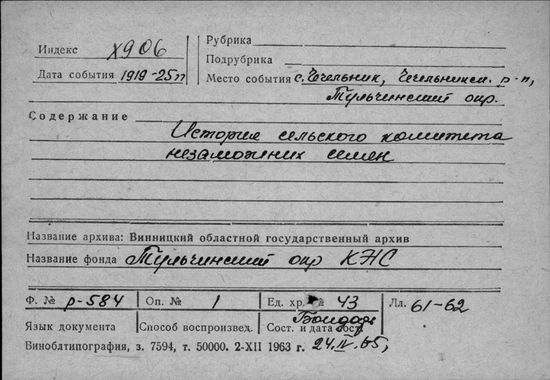 Индекс Х906
Рубрика
Подрубрика
Дата события 1919-25гг
Место события с. Чечельник, Чечельницк. р-н,
Тульчинский окр.
Содержание
История сельского комитета
незаможних селян
Название архива: Винницкий областной государственный архив
Название фонда Тульчинский окр КНС
Ф. № р-584 Оп. № 1 Ед. хр. № 43 Лл. 61-62
Язык документа Способ воспроизвед. Сост. и дата
Винобтипография, з. 7594, т. 50000. 2-XII 1963 г. 24.IV.65,